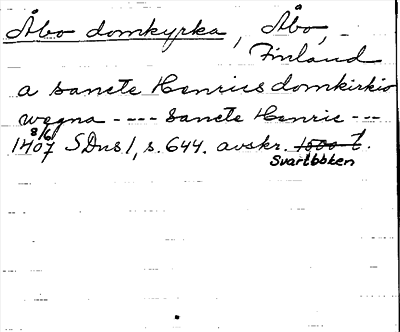 Åbo domkyrka, Åbo,
Finland
a sancte Henrics domkirkio
wegna ---- Sancte Henric ---
8/6
1407 SDns 1, s. 644. avskr. 1500 t.
Svartboken